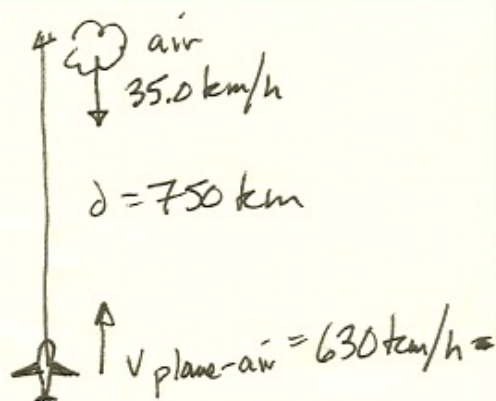 air
35.0 km/h
d = 750 km
v plane-air = 630 km/h =